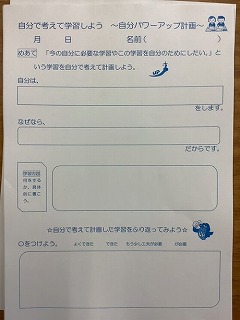 自分で考えて学習しよう　～自分パワーアップ計画～
月　　日　　名前（　　　　）
めあて 「今の自分に必要な学習やこの学習を自分のためにしたい。」と
いう学習を自分で考えて計画しよう。
自分は、
をします。
なぜなら、
だからです。
学習内容
何をする
か、具体
的に書こ
う。
☆自分で考えて計画した学習をふり返ってみよう☆
○をつけよう。　よくできた　できた　もう少し工夫が必要　が必要